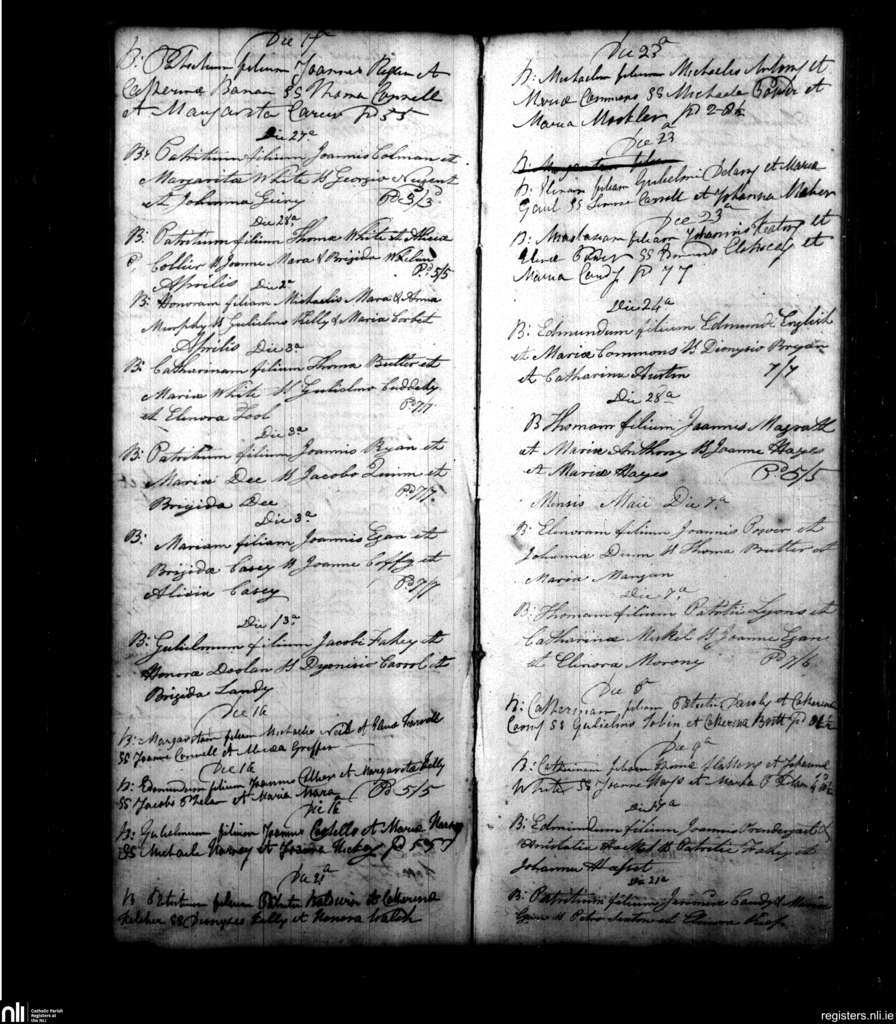 Die 17
B: Patritium filium Joannis Ryan et
Catherina Banan SS Thoma Connell
et Margarita Carew pd 5 5
Die 27a
B: Patritium filium Joannis Colman et
Margarita White SS Georgio Nugent
et Johanna Geiry Pd 5/3d
Die 28a
B: Patritium filium Thoma White et Alicia
Collier SS Joanne Mara & Brigida Whelan
Pd 5/5
Aprilis Die 2a
B: Honoram filiam Michaelis Mara & Anna
Murphy SS Gulielmo Kelly & Maria Corbet
Aprilis Die 3a
B: Catharinam filiam Thoma Butler et
Maria White SS Gulielmo Cuddihy
et Elenora Fool Pd 7/7
Die 3a
B: Patritium filium Joannis Ryan et
Maria Dee SS Jacobo Quinn et
Brigida Dee Pd 7/7
Die 3a
B: Mariam filiam Joannis Egan et
Brigida Casey SS Joanne Coffy et
Alicia Casey Pd 7/7
Die 13a
B: Gulielmum filium Jacobi Fahey et
Honora Doolan SS Dyonisio Carrol et
Brigida Landy
Die 16
B: Margaritam filiam Michaelis
SS Joanne Connell et
Die 16
B: Edmundum filium Joannis et Margarita Kelly
SS Jacobo Phelan et Maria Mara Pd 5/5
Die 16
B: Gulielmum filium Joannis Costello et Maria
SS Michaele et Joanna Hickey pd
Die 21a
B Patritium filium Patritii Baldwin et Catherina
Kelcher SS Dionysio Kelly et Honora Walsh
Die 23a
B: Michaelem filium Michaelis Antony et
Maria Commons SS Michaele Power et
Maria Mockler pd 2-8½
Die 23a
B: Margaritam filiam
B: Elenam filiam Gulielmi Delany et Maria
Gaul SS Carroll et Johanna Maher
Die 23a
B: Anastasiam filiam Johannis Keating et
Elena Power SS et
Maria Candy pd 7 7
Die 24a
B: Edmundum filium Edmundi English
et Maria Commons SS Dionysio Bryan
et Catharina Austin 7/7
Die 28a
B Thomam filium Joannis Magrath
et Maria Anthony SS Joanne Hayes
et Maria Hayes Pd 5/5
Mensis Maii Die 7a
B: Elenoram filiam Joannis Power et
Johanna Dunn SS Thoma Butler et
Maria Mangan
Die 7a
B: Thomam filium Patritii Lyons et
Catharina Meskel SS Joanne Egan
et Elenora Morony Pd 7/6
Die 8a
B: Catherinam filiam Patritii Darcy et Catherina
SS Gulielmo Tobin et Catherina pd
Die 9a
B: Catherinam filiam Thoma Slattery et Johanna
White SS Joanne Hays et Maria
Die 17a
B: Edmundum filium Joannis Prendergast &
Anastatia Hacket SS Patritio Fahey et
Johanna
Die 21a
B: Patritium filium Joannis Candy & Maria
Egan SS Petro et Elenora
nli
Catholic Parish
Registers at
the NLI
registers.nli.ie